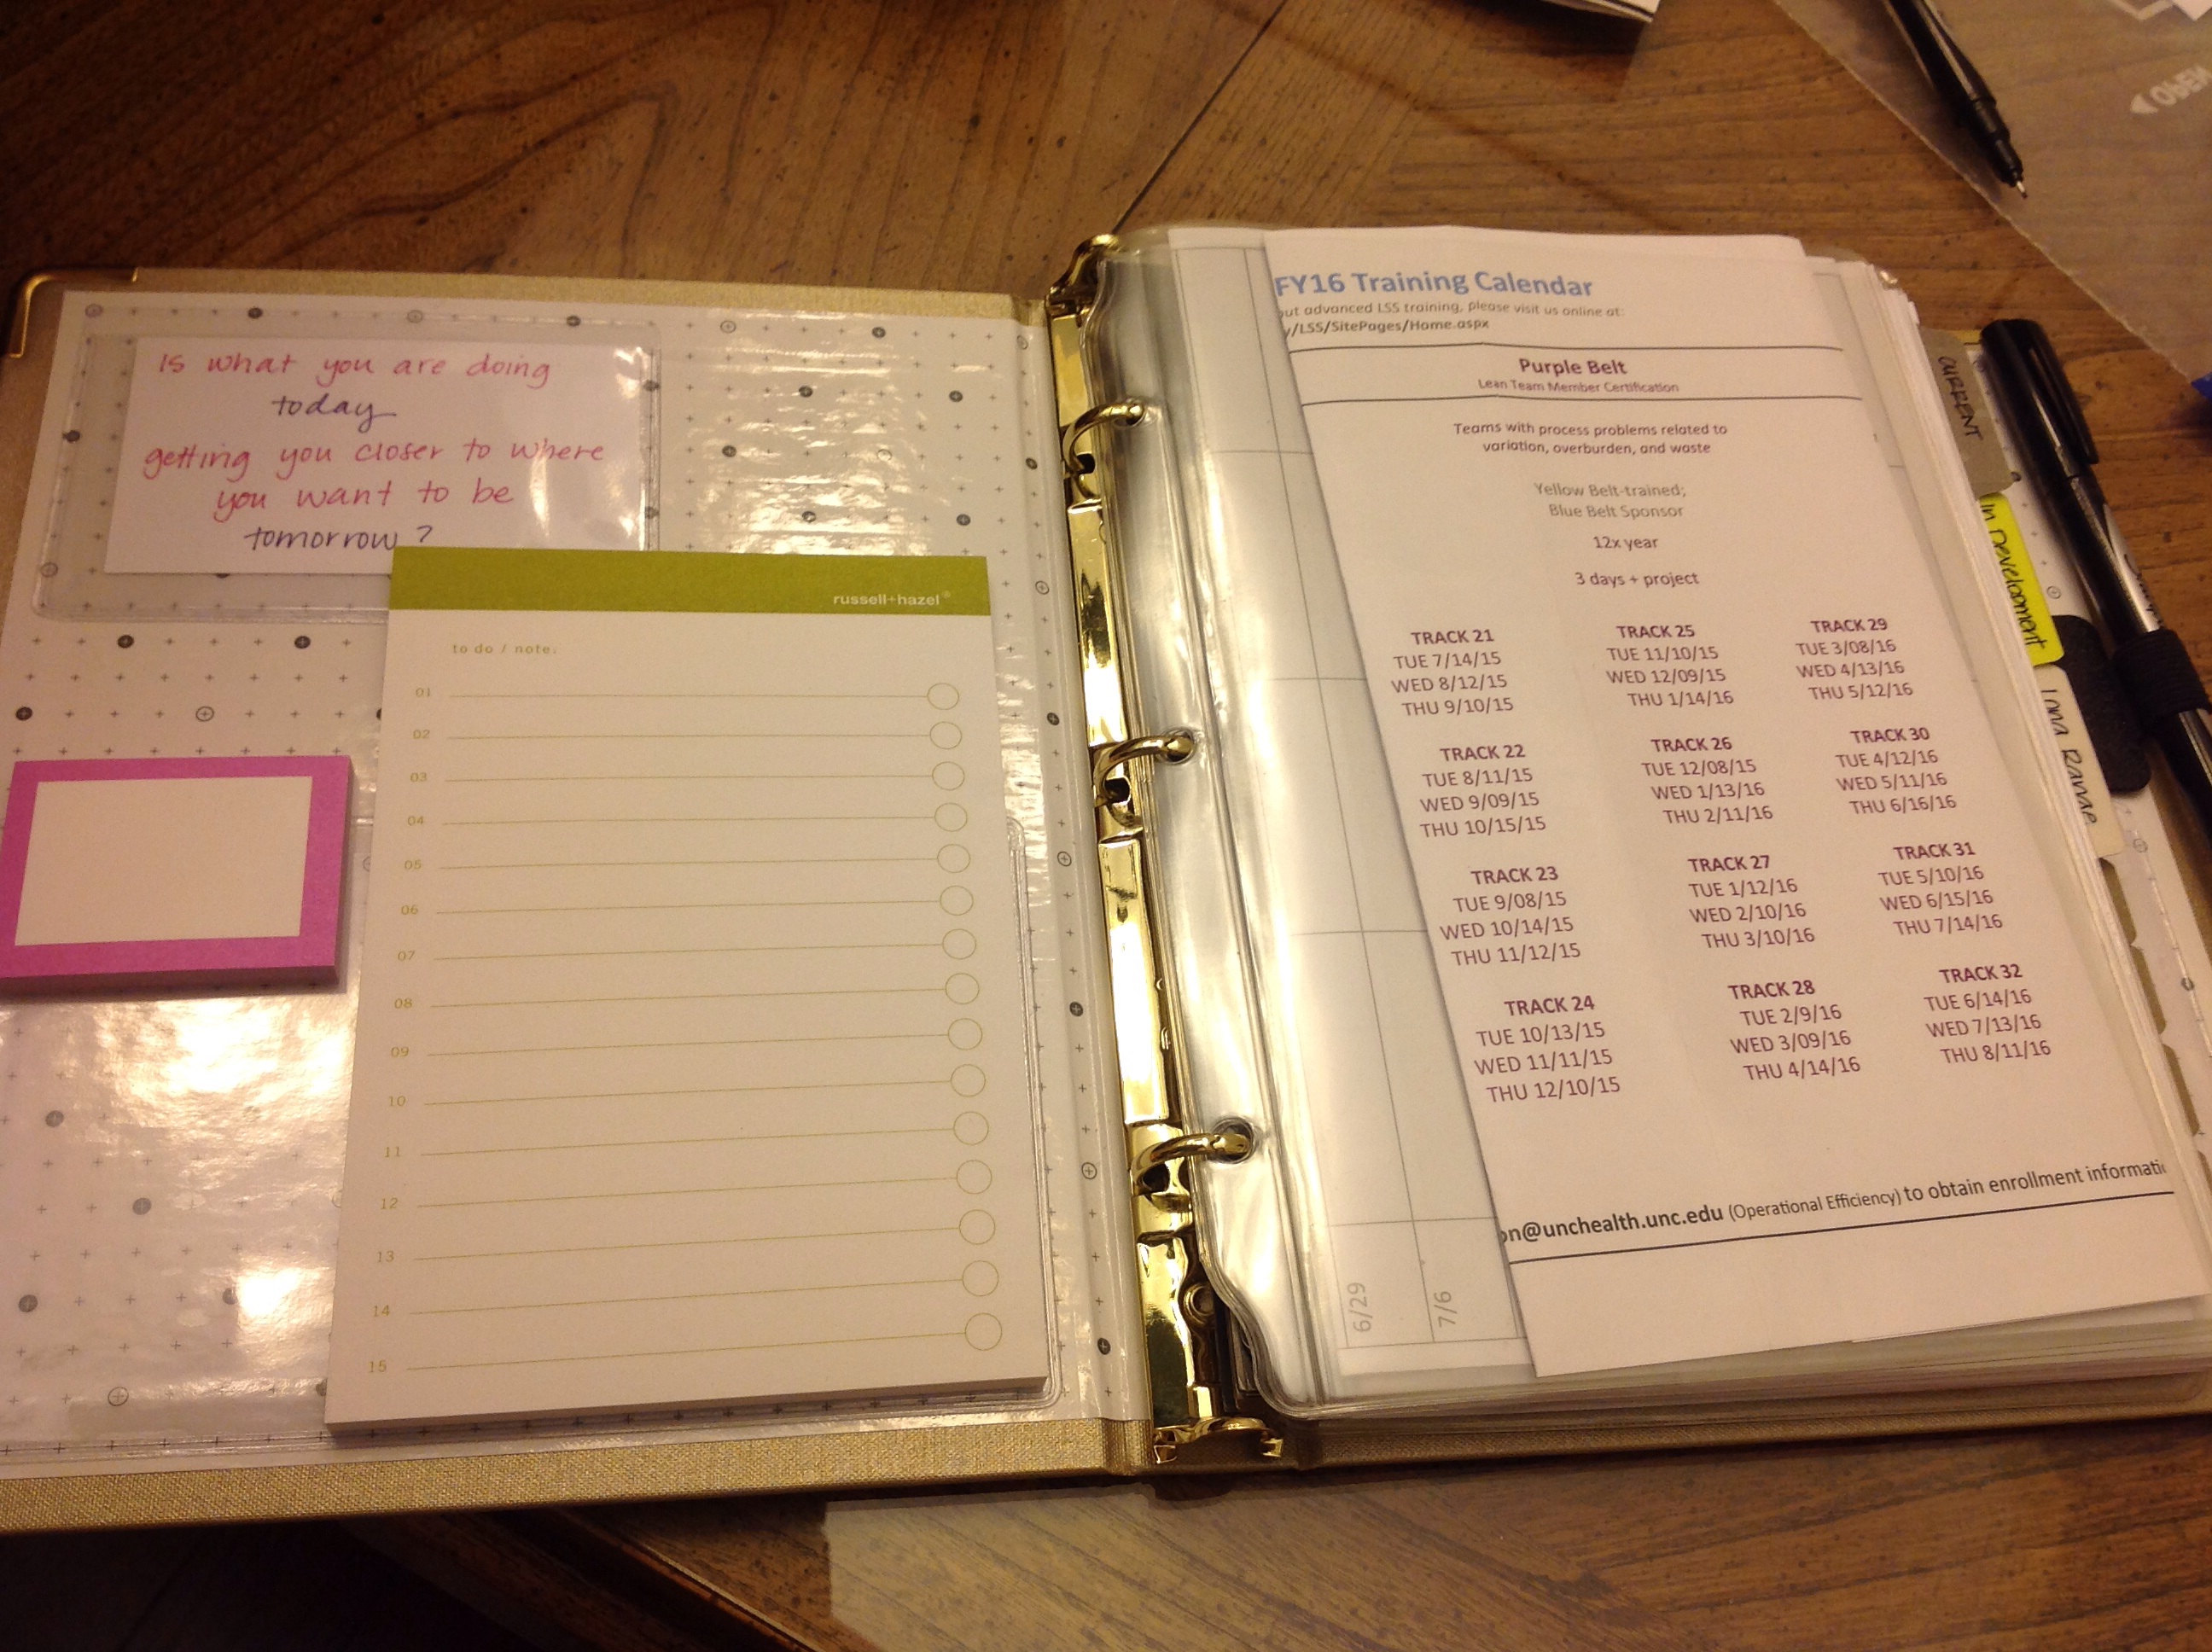 Is what you are doing
today
getting you closer to where
you want to be
tomorrow?
russell+hazel®
to do / note:
01
02
03
04
05
06
07
08
09
10
11
12
13
14
15
FY16 Training Calendar
advanced LSS training, please visit us online at:
/LSS/SitePages/Home.aspx
Purple Belt
Lean Team Member Certification
Teams with process problems related to
variation, overburden, and waste
Yellow Belt-trained;
Blue Belt Sponsor
12x year
3 days + project
TRACK 21
TUE 7/14/15
WED 8/12/15
THU 9/10/15
TRACK 22
TUE 8/11/15
WED 9/09/15
THU 10/15/15
TRACK 23
TUE 9/08/15
WED 10/14/15
THU 11/12/15
TRACK 24
TUE 10/13/15
WED 11/11/15
THU 12/10/15
TRACK 25
TUE 11/10/15
WED 12/09/15
THU 1/14/16
TRACK 26
TUE 12/08/15
WED 1/13/16
THU 2/11/16
TRACK 27
TUE 1/12/16
WED 2/10/16
THU 3/10/16
TRACK 28
TUE 2/9/16
WED 3/09/16
THU 4/14/16
TRACK 29
TUE 3/08/16
WED 4/13/16
THU 5/12/16
TRACK 30
TUE 4/12/16
WED 5/11/16
THU 6/16/16
TRACK 31
TUE 5/10/16
WED 6/15/16
THU 7/14/16
TRACK 32
TUE 6/14/16
WED 7/13/16
THU 8/11/16
on@unchealth.unc.edu (Operational Efficiency) to obtain enrollment informati
6/29
7/6
CURRENT
In Development
Long Range
OPEN